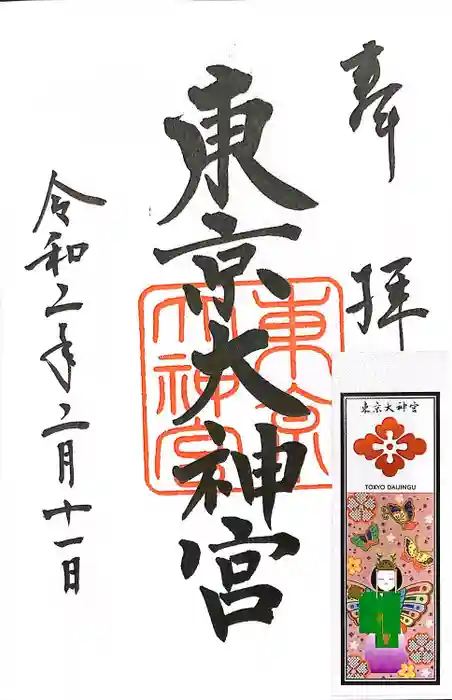 奉拝
東京大神宮
東京大神宮
令和二年二月十一日
東京大神宮
TOKYO DAIJINGU